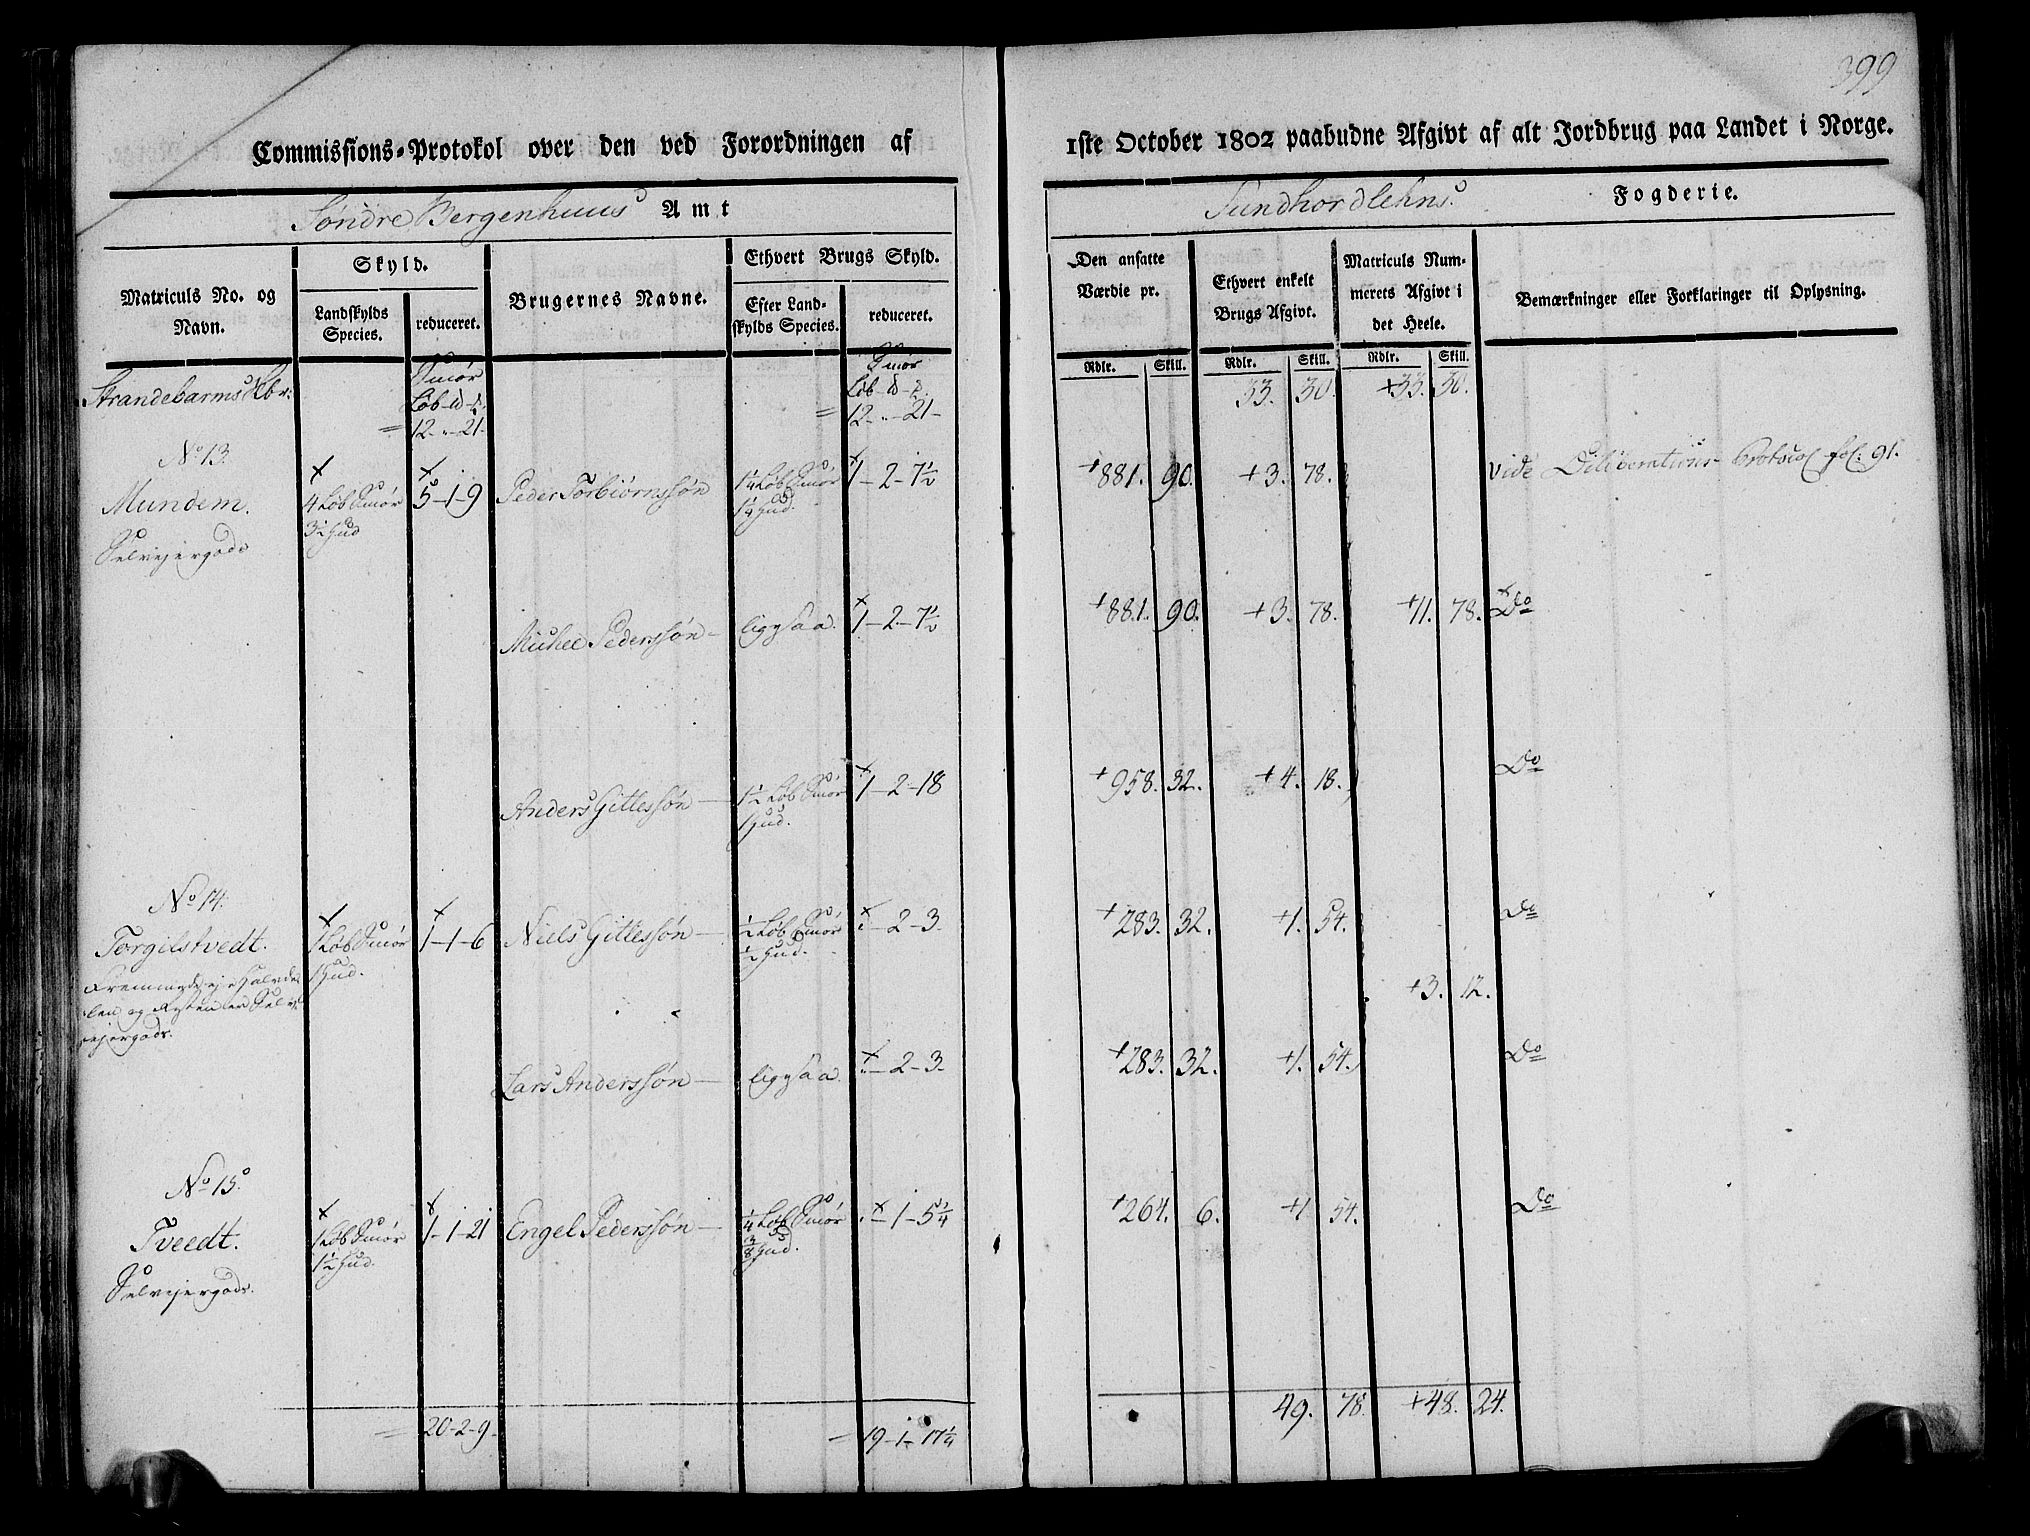 399
Commissions-Protokol over den ved Forordningen af 1ste October 1802 paabudne Afgivt af alt Jordbrug paa Landet i Norge.
Søndre Bergenhuus Amt
Sundhordlehns Fogderie.
Matriculs No. og Navn.
Skyld.
Landskylds Species.
reduceret.
Brugernes Navne.
Ethvert Brugs Skyld.
Efter Landskylds Species.
reduceret.
Den ansatte Værdie pr.
Ethvert enkelt Brugs Afgivt.
Matriculs Nummerets Afgivt i det Heele.
Bemærkninger eller Forklaringer til Oplysning.
Rdlr. Skill. Rdlr. Skill. Rdlr. Skill.
Strandebarms Skbr: Smør Smør 33. 30. +33. 30.
Løb - - Løb - -
= 12 - " - 21 - = 12 - " - 21 -
No 13.
Mundem. 4 Løb Smør 5-1-9 Peder Torbiørnssøn 1¼ Løb Smør 1-2-7½ +881. 90. +3. 78. vide Deliberations-Protocol fol: 91.
3½ Hud 1¼ Hud.
Selvejergods
Michel Pederssøn - ligesaa. 1-2-7½ +881. 90. +3. 78. +11. 78. Do
Anders Gittessøn - 1½ Løb Smør 1-2-18 +958. 32. +4. 18. Do
1 Hud.
No 14.
Torgilstvedt. 1 Løb Smør 1-1-6 Niels Gittessøn - ½ Løb Smør "-2-3. +283. 32. +1. 54. Do
1 Hud. ½ Hud.
Fremmede eje Halvdelen og Resten er Selvejergods.
+3. 12.
Lars Anderssøn - ligesaa. "-2-3. +283. 32. +1. 54. Do
No 15.
Tveedt. 1 Løb Smør 1-1-21 Engel Pederssøn - ¼ Løb Smør "-1-5¼ +264. 6. +1 54. Do
1½ Hud. 3/8 Hud.
Selvejergods.
= 20-2-9. - 19-1-17¼ 49. 78. +48. 24.